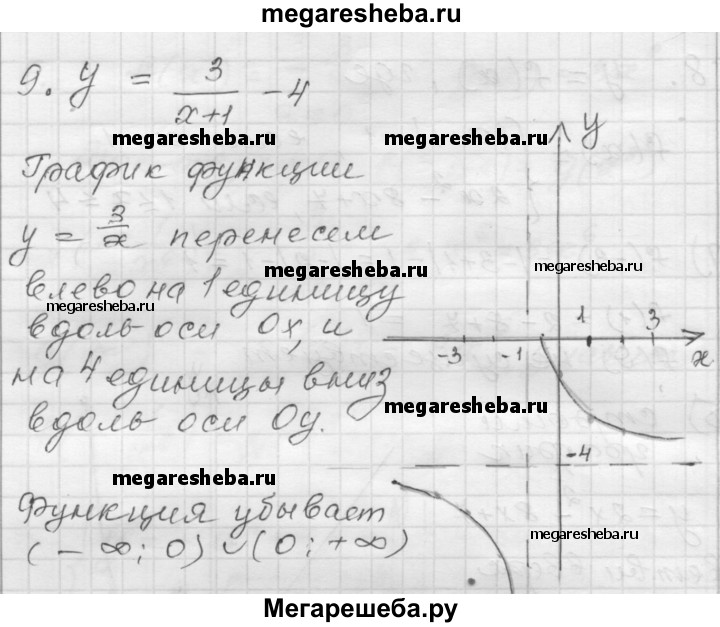 megaresheba.ru
9. y = 3/(x+1) - 4
megaresheba.ru megaresheba.ru
График функции
y = 3/x перенесем
megaresheba.ru megaresheba.ru
влево на 1 единицу
megaresheba.ru
вдоль оси Ox, и
на 4 единицы вниз
megaresheba.ru
вдоль оси Oy.
megaresheba.ru
Функция убывает
(-∞; 0) ∪ (0; +∞)
y
-3 -1 1 3 x
-4
megaresheba.ru
Мегарешеба.ру